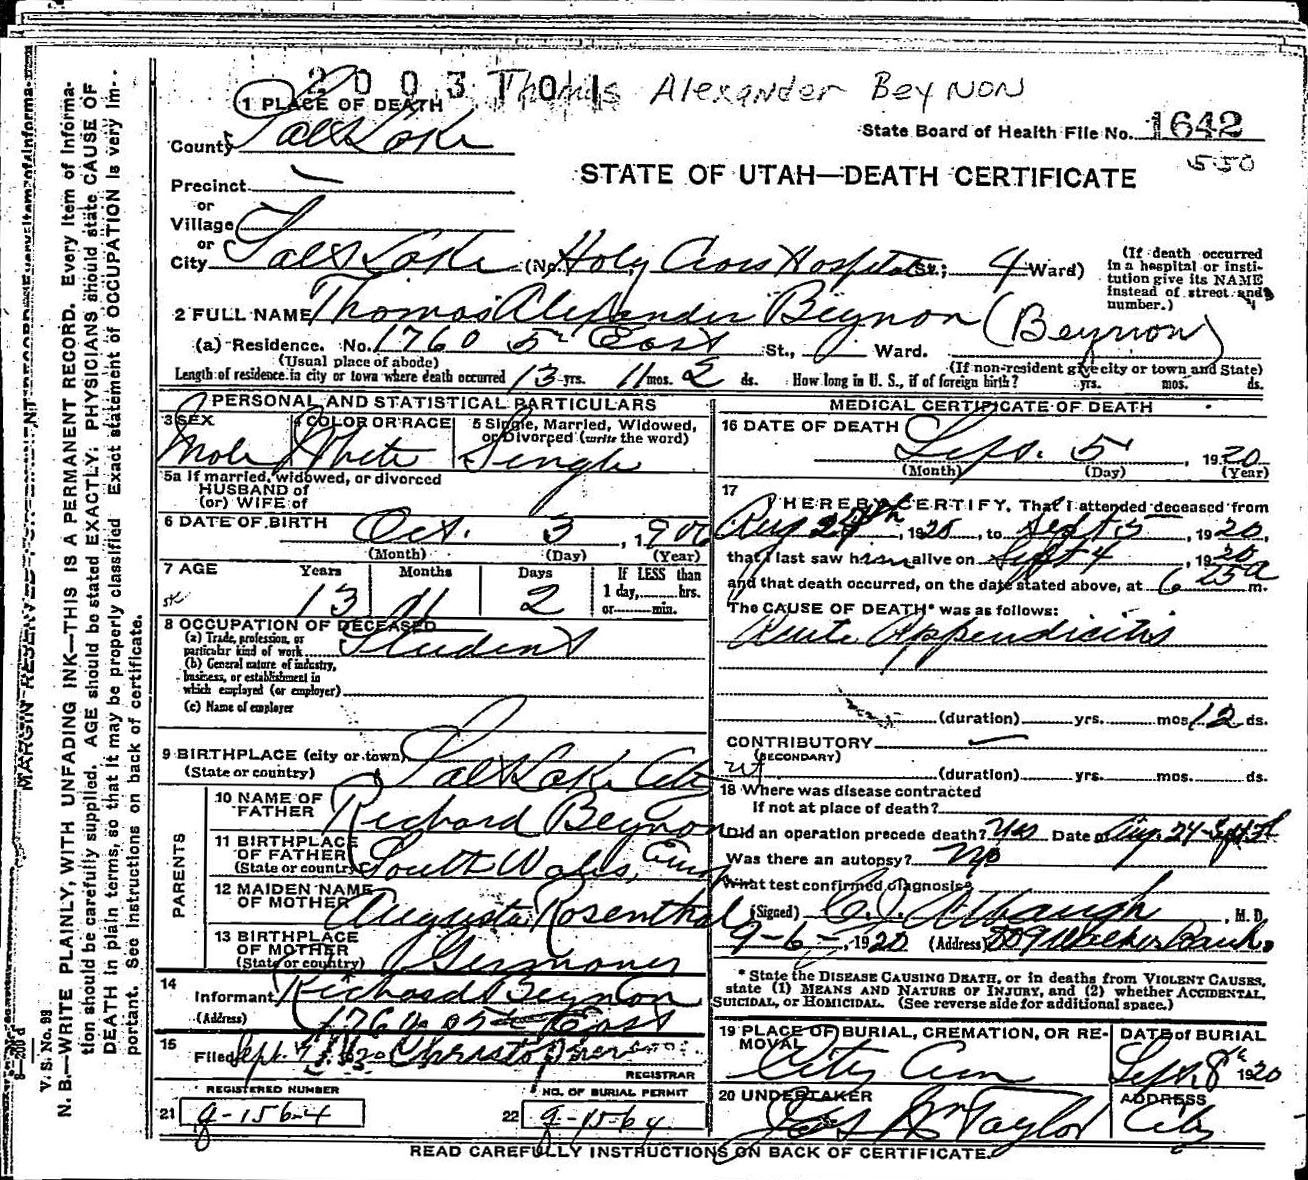 2003701 Thomas Alexander Beynon
1 PLACE OF DEATH
County Salt Lake
State Board of Health File No. 1642
550
STATE OF UTAH—DEATH CERTIFICATE
Precinct
or
Village
or
City Salt Lake (No. Holy Cross Hospital St.; 4 Ward)
(If death occurred in a hospital or institution give its NAME instead of street and number.)
2 FULL NAME Thomas Alexander Beynon (Beynon)
(a) Residence. No. 1760 5th East St., Ward.
(Usual place of abode) (If non-resident give city or town and State)
Length of residence in city or town where death occurred 13 yrs. 11 mos. 2 ds. How long in U. S., if of foreign birth? yrs. mos. ds.
PERSONAL AND STATISTICAL PARTICULARS
3 SEX 4 COLOR OR RACE 5 Single, Married, Widowed, or Divorced (write the word)
Male White Single
5a If married, widowed, or divorced
HUSBAND of
(or) WIFE of
6 DATE OF BIRTH Oct. 3, 1906
(Month) (Day) (Year)
7 AGE Years Months Days If LESS than
1 day, hrs.
or min.
13 11 2
8 OCCUPATION OF DECEASED
(a) Trade, profession, or
particular kind of work Student
(b) General nature of industry,
business, or establishment in
which employed (or employer)
(c) Name of employer
9 BIRTHPLACE (city or town) Salt Lake City
(State or country) ut
PARENTS
10 NAME OF FATHER Richard Beynon
11 BIRTHPLACE OF FATHER
(State or country) South Wales,
12 MAIDEN NAME OF MOTHER Augusta Rosenthal
13 BIRTHPLACE OF MOTHER
(State or country) Germany
14
Informant Richard Beynon
(Address) 1760 - 5th East
15
Filed Sept. 1920
REGISTRAR
REGISTERED NUMBER NO. OF BURIAL PERMIT
21 g-1564 22 g-1564
MEDICAL CERTIFICATE OF DEATH
16 DATE OF DEATH Sept. 5, 1920
(Month) (Day) (Year)
17
I HEREBY CERTIFY, That I attended deceased from
Aug 24th, 1920, to Sept 5, 1920,
that I last saw him alive on Sept 4, 1920
and that death occurred, on the date stated above, at 6 25 a m.
The CAUSE OF DEATH* was as follows:
Acute Appendicitis
(duration) yrs. mos. 12 ds.
CONTRIBUTORY
(SECONDARY)
(duration) yrs. mos. ds.
18 Where was disease contracted
if not at place of death?
Did an operation precede death? Yes Date of Aug. 24-
Was there an autopsy? No
What test confirmed diagnosis?
(Signed) , M. D.
9-6-, 1920 (Address) 809 Walker Bank
* State the DISEASE CAUSING DEATH, or in deaths from VIOLENT CAUSES,
state (1) MEANS AND NATURE OF INJURY, and (2) whether ACCIDENTAL,
SUICIDAL, or HOMICIDAL. (See reverse side for additional space.)
19 PLACE OF BURIAL, CREMATION, OR REMOVAL DATE of BURIAL
City Cem Sept. 8th 1920
20 UNDERTAKER ADDRESS
Taylor City
READ CAREFULLY INSTRUCTIONS ON BACK OF CERTIFICATE.
V. S. No. 98
N. B.—WRITE PLAINLY, WITH UNFADING INK—THIS IS A PERMANENT RECORD. Every item of information should be carefully supplied. AGE should be stated EXACTLY. PHYSICIANS should state CAUSE OF DEATH in plain terms, so that it may be properly classified. Exact statement of OCCUPATION is very important. See instructions on back of certificate.